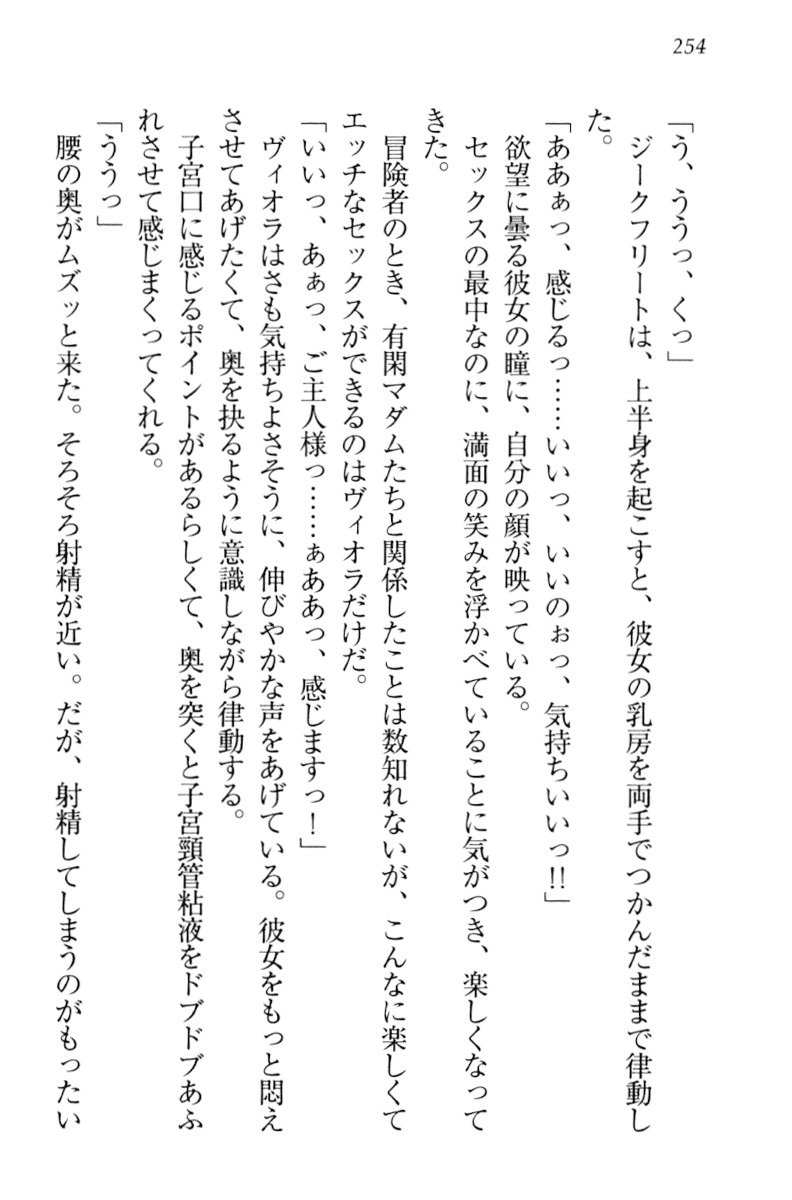 254
「う、ううっ、くっ」
　ジークフリートは、上半身を起こすと、彼女の乳房を両手でつかんだままで律動し
た。
「ああぁっ、感じるっ……いいっ、いいのぉっ、気持ちいいっ!!」
　欲望に曇る彼女の瞳に、自分の顔が映っている。
　セックスの最中なのに、満面の笑みを浮かべていることに気がつき、楽しくなって
きた。
　冒険者のとき、有閑マダムたちと関係したことは数知れないが、こんなに楽しくて
エッチなセックスができるのはヴィオラだけだ。
「いいっ、あぁっ、ご主人様っ……ぁああっ、感じますっ！」
　ヴィオラはさも気持ちよさそうに、伸びやかな声をあげている。彼女をもっと悶え
させてあげたくて、奥を抉るように意識しながら律動する。
　子宮口に感じるポイントがあるらしくて、奥を突くと子宮頸管粘液をドブドブあふ
れさせて感じまくってくれる。
「ううっ」
　腰の奥がムズッと来た。そろそろ射精が近い。だが、射精してしまうのがもったい